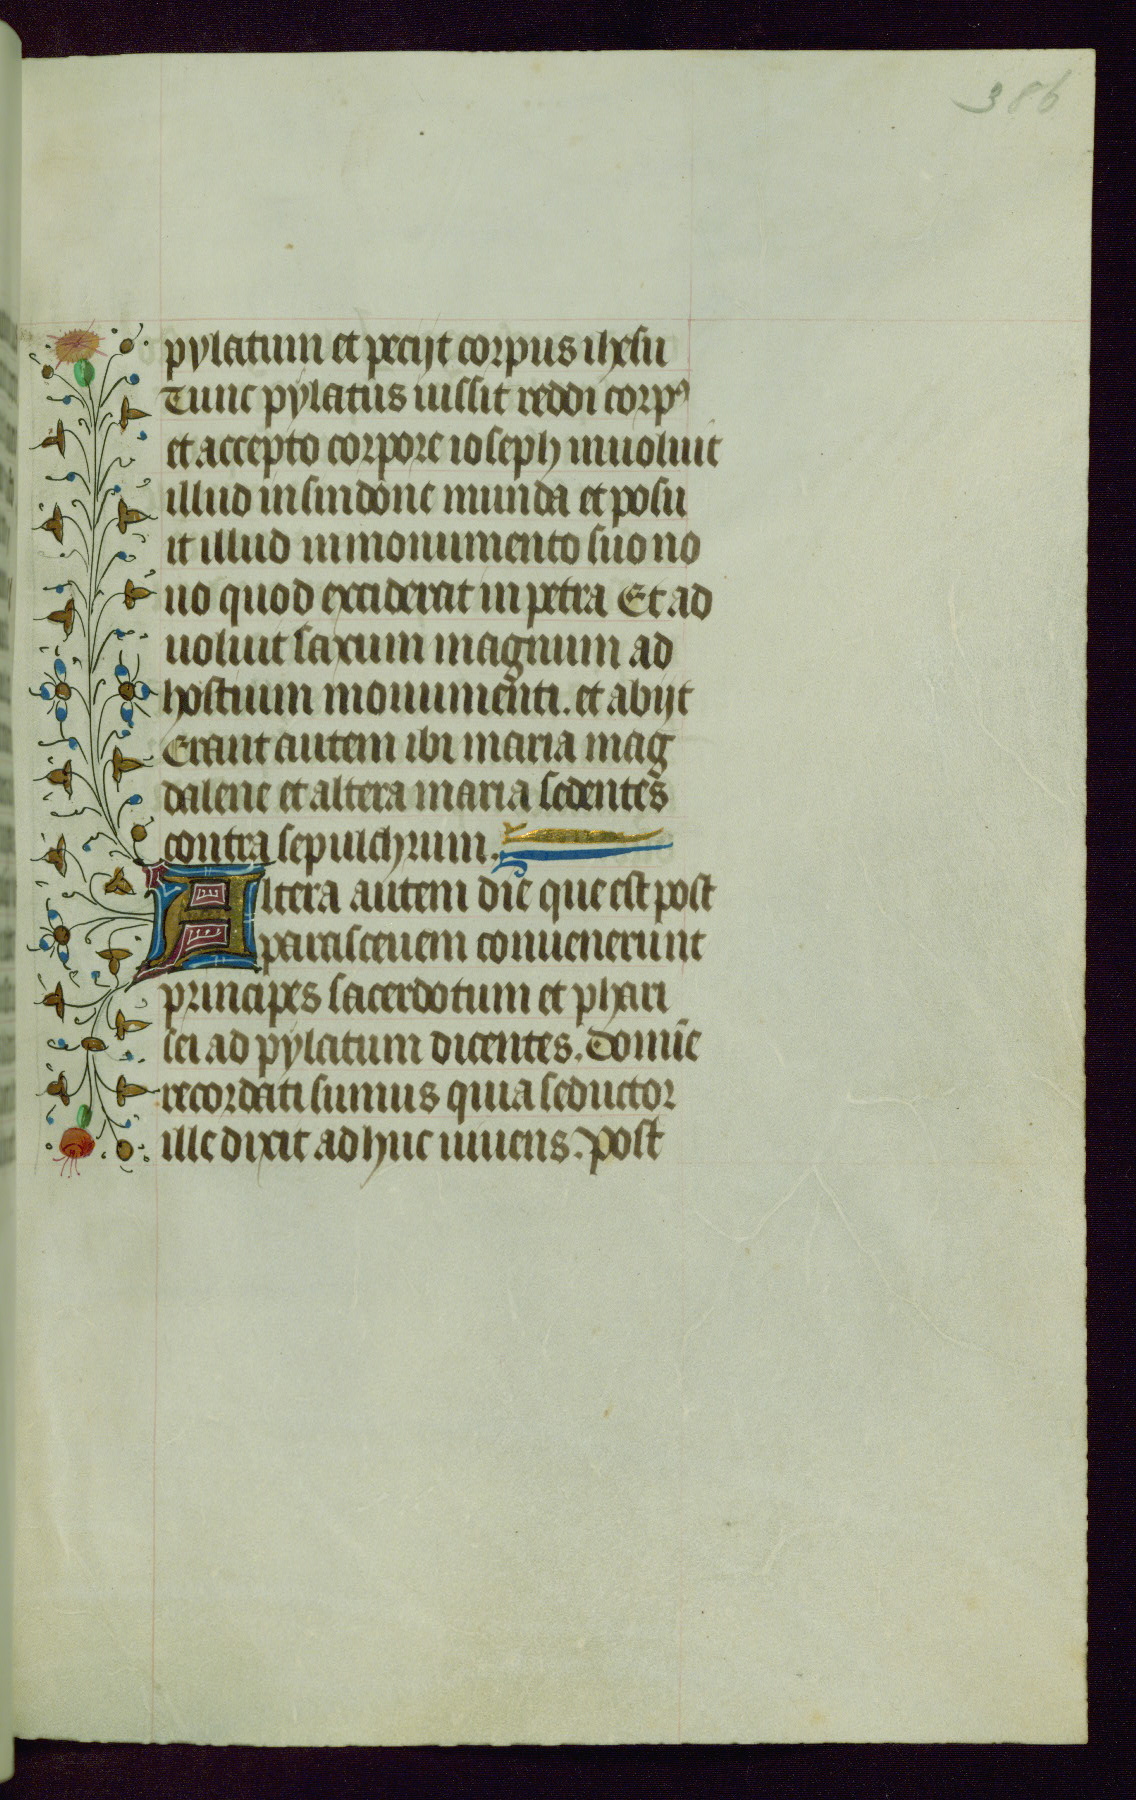 386
pylatum et pecijt corpus ihesu
Tunc pylatus iussit reddi corpꝯ
et accepto corpore ioseph inuoluit
illud in sindone munda et posu
it illud in monumento suo no
uo quod exciderat in petra Et ad
uoluit saxum magnum ad
hostium monumenti. et abijt
Erant autem ibi maria mag
dalene et altera maria sedentes
contra sepulchrum.
Altera autem die que est post
parasceuem conuenerunt
principes sacerdotum et phari
sei ad pylatum dicentes. Domīe
recordati sumus quia seductor
ille dixit adhuc uiuens. Post